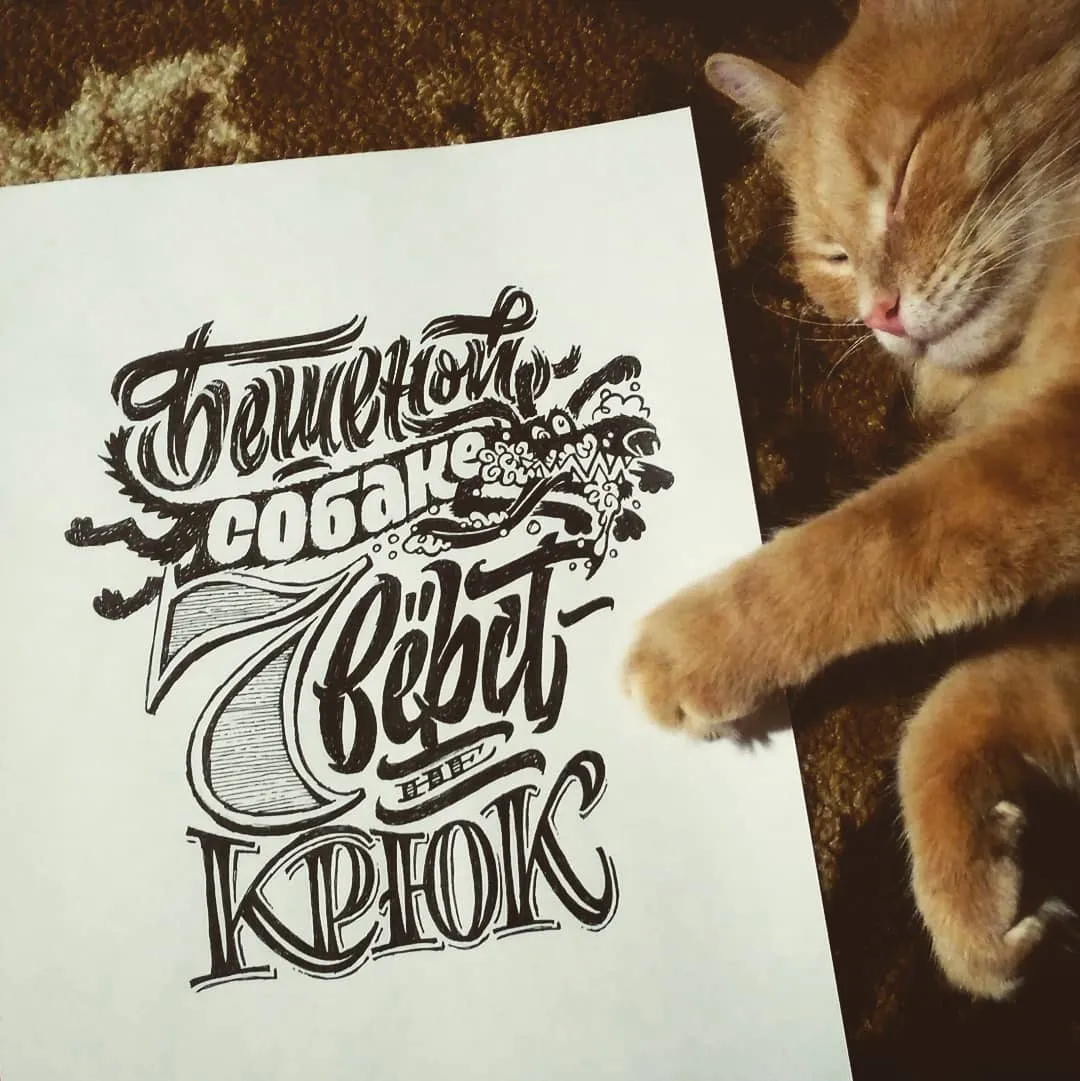 Бешеной
собаке
7 вёрст
не
крюк